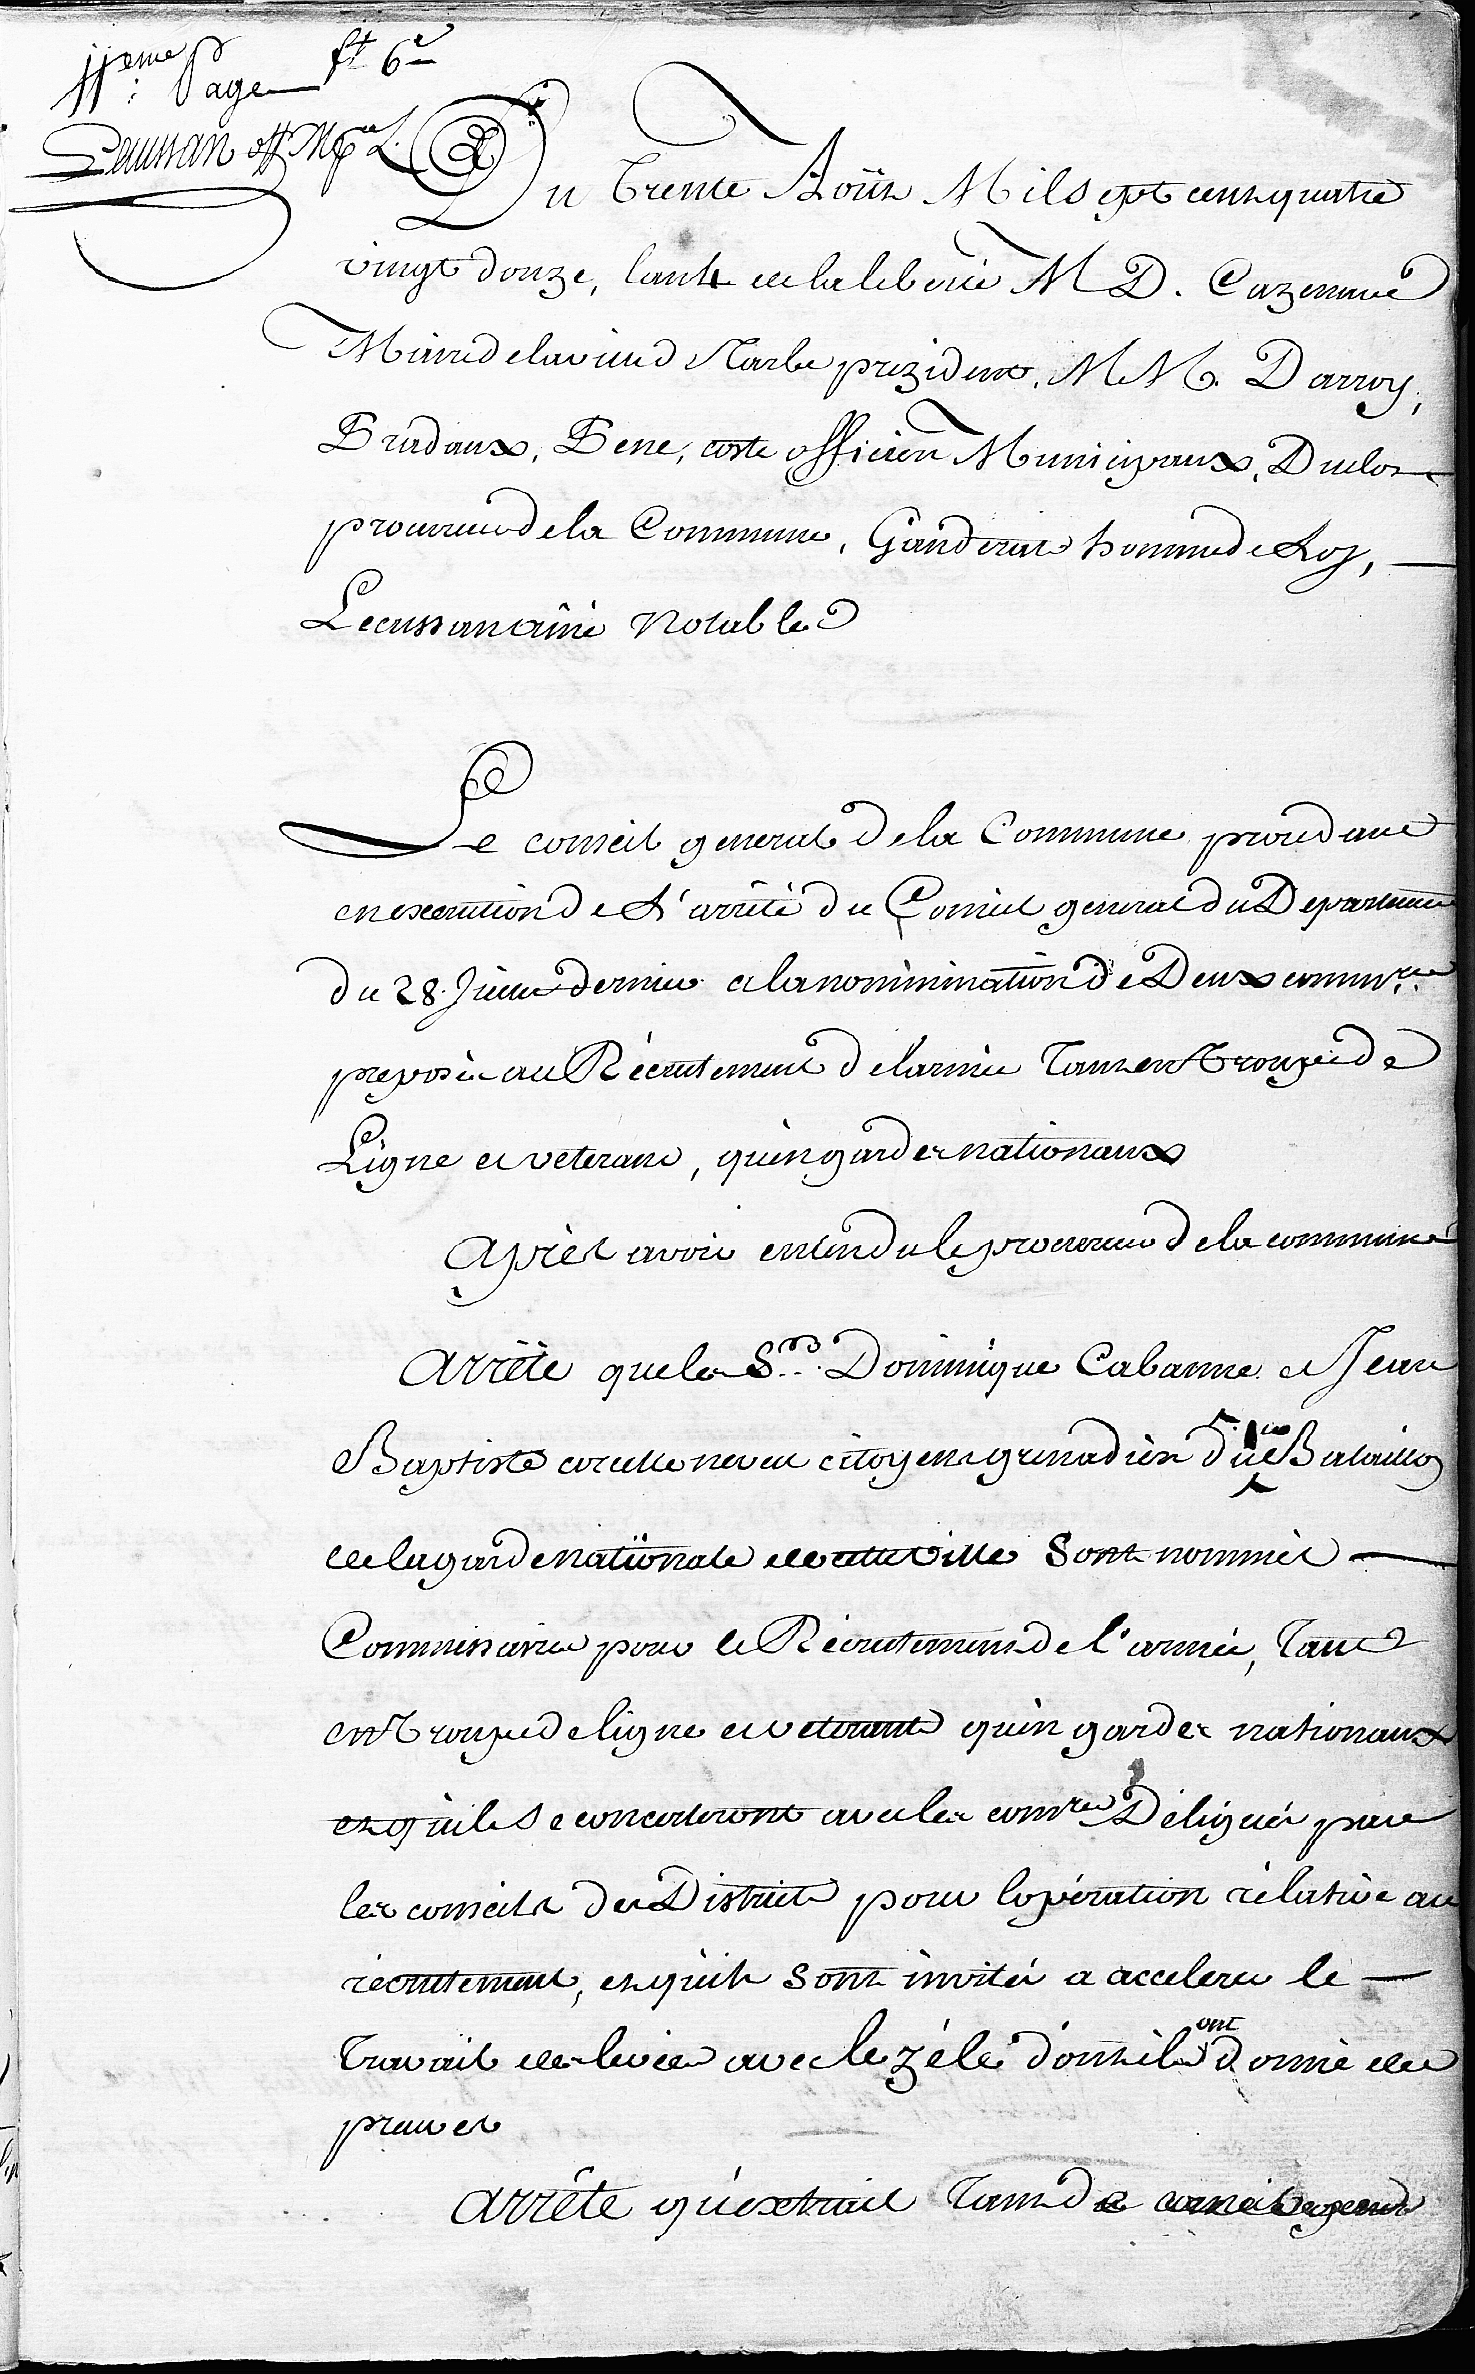 11.eme Page ft 6e
Lecussan off. Mpal
Du trente Août Mil sept cent quatre
vingt douze, l'an 4 de la liberté M D. Cazenave
Maire de la ville de Tarbe president, M M. Darroy,
Brudaux, Bene, coste officiers Municipaux, Duclos
procureur de la Commune, Ganderat homme de Loy,
Lecussan aîné Notables
Le conseil general de la Commune procedant
en execution de L'arrêté du Conseil general du Departement
du 28. Juillet dernier a la nomimination de Deux commres
preposés au Récrutement de larmée tant en trouppe de
Ligne et veterans, qu'en gardes nationaux
Après avoir entendu le procureur de la commune
Arrête que les Srs. Dominique Cabanne et Jean
Baptiste corette neveu citoyens grenadiers du 1er Bataillon
de la garde nationale de cette ville sont nommés
Commissaires pour le Récrutement de l'armée, tant
en trouppe de ligne et veterants qu'en gardes nationaux
et qu'ils se concerteront avec les comres Délégués par
les conseils du District pour lopération rélative au
récrutement, et qu'ils sont invités a accelerer le
travail des levées avec le zéle dont ils ont donné des
preuves
Arrête qu'extrait tant de